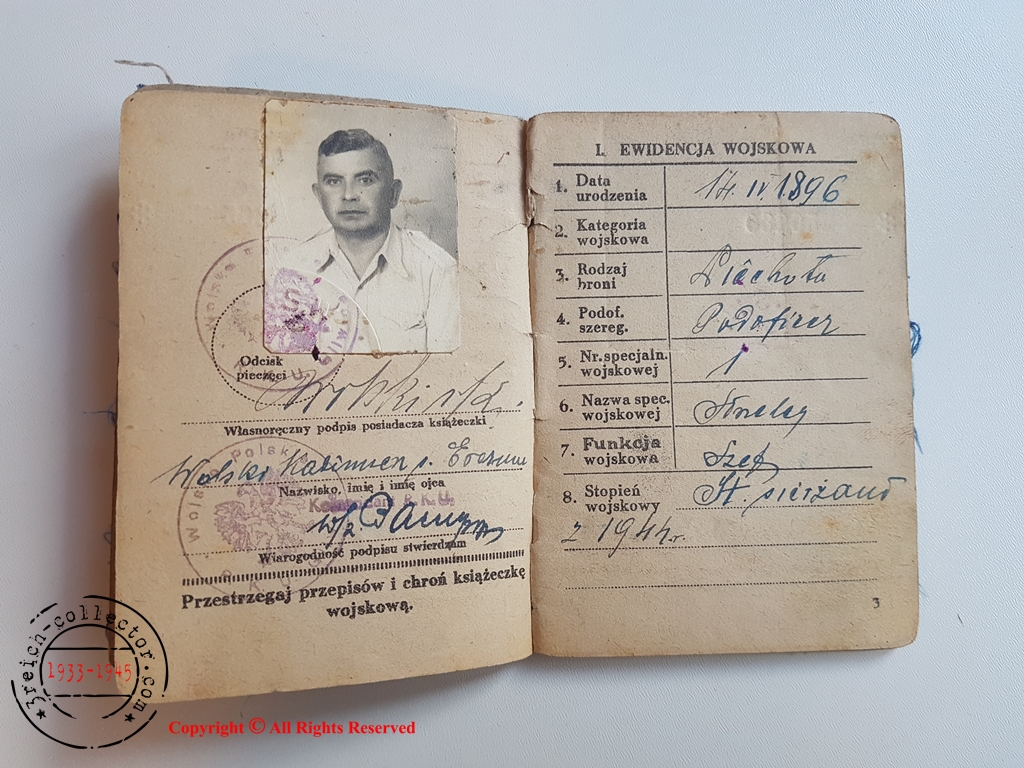 Odcisk
pieczęci
Wolski
Własnoręczny podpis posiadacza książeczki
Wolski Kazimierz s.
Nazwisko, imię i imię ojca
R.K.U.
Wiarogodność podpisu stwierdzam
Przestrzegaj przepisów i chroń książeczkę
wojskową.
I. EWIDENCJA WOJSKOWA
1. Data urodzenia 14. IV. 1896
2. Kategoria wojskowa
3. Rodzaj broni Piechota
4. Podof. szereg. Podoficer
5. Nr. specjaln. wojskowej 1
6. Nazwa spec. wojskowej Strzelcy
7. Funkcja wojskowa Szef
8. Stopień wojskowy St. sierżant
z 1944 r.
3
3reich-collector.com
1933-1945
Copyright © All Rights Reserved